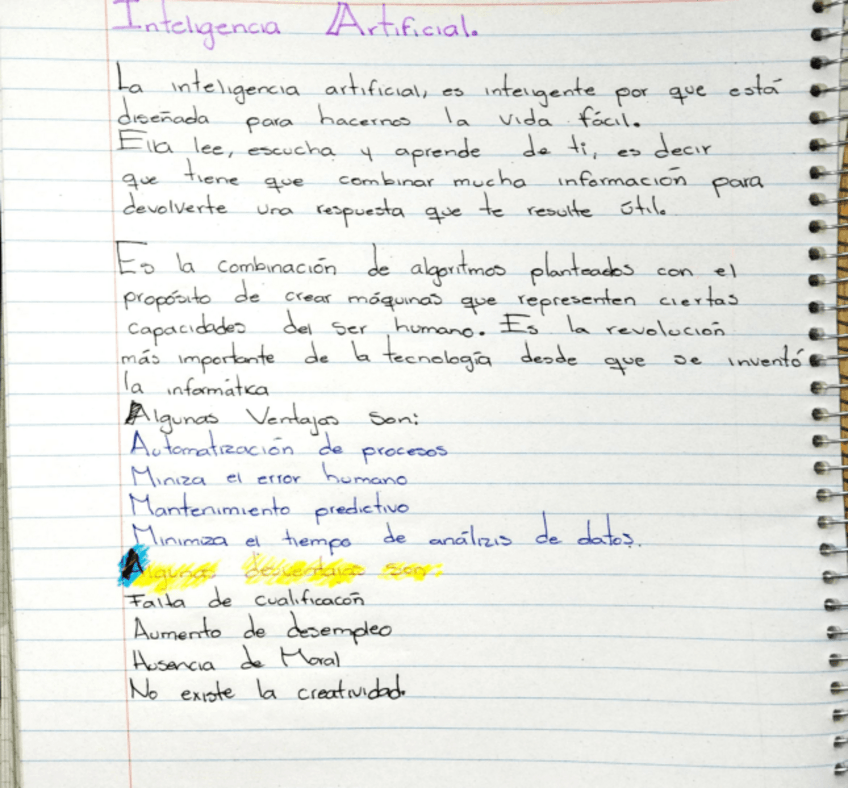 Inteligencia Artificial.
La inteligencia artificial, es inteligente por que está
diseñada para hacernos la vida fácil.
Ella lee, escucha y aprende de ti, es decir
que tiene que combinar mucha información para
devolverte una respuesta que te resulte útil.
Es la combinación de algoritmos planteados con el
propósito de crear máquinas que representen ciertas
capacidades del ser humano. Es la revolución
más importante de la tecnología desde que se inventó
la informática
Algunas Ventajas son:
Automatización de procesos
Miniza el error humano
Mantenimiento predictivo
Minimiza el tiempo de análizis de datos.
Algunas desventajas son:
Falta de cualificacón
Aumento de desempleo
Ausencia de Moral
No existe la creatividad.